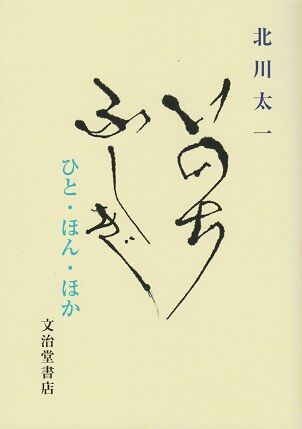 北川太一
いのち
ふしぎ
ひと・ほん・ほか
文治堂書店